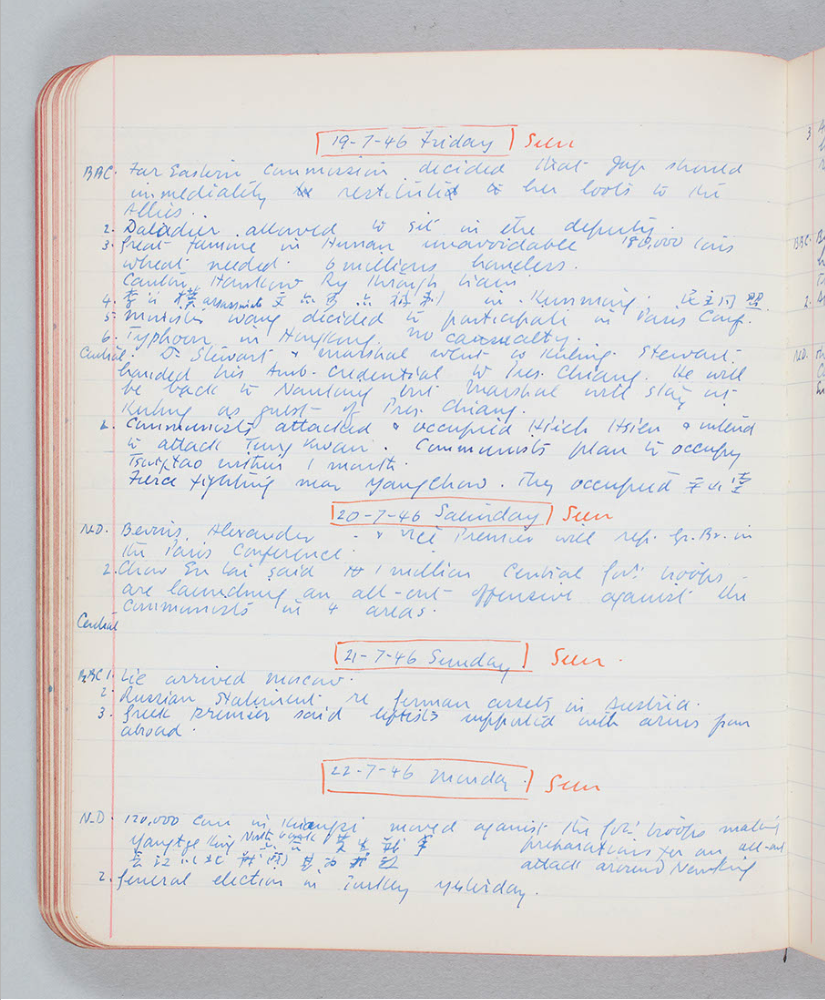 19-7-46 Friday Seen
BBC. Far Eastern Commission decided that Jap should
immediately her loots to the
Allies.
2. Daladier allowed to sit in the deputy.
3. Great famine in Hunan unavoidable 180,000 tons
wheat needed. 6 millions homeless.
Canton Hankow Ry through train
4. assassinated in Kunming.
5. Minister Wang decided to participate in Paris Conf.
6. Typhoon in Hongkong no casualty.
Central. Dr Stewart & Marshal went to Kuling. Stewart
handed his Amb. credential to Pres. Chiang. He will
be back to Nanking but Marshal will stay at
Kuling as guest of Pres. Chiang.
2. Communists attacked & occupied Hsieh Hsien & intend
to attack Tung Kwan. Communists plan to occupy
Tsingtao within 1 month.
Fierce fighting near Yangchow. They occupied
20-7-46 Saturday Seen
N.D. Bevins, Alexander - & Vice Premier will rep. Gr. Br. in
the Paris Conference.
2. Chow En Lai said 1 million Central Govt troops
are launching an all-out offensive against the
Communists in 4 areas.
Central
21-7-46 Sunday Seen.
BBC 1. Lie arrived Moscow.
2. Russian Statement re German assets in Austria.
3. Greek Premier said leftists supported with arms from
abroad.
22-7-46 Monday. Seen
N.D. 120,000 Com in Kiangsi moved against the Govt troops making
Yangtze King North bank preparations for an all-out
attack around Nanking
2. General election in Turkey yesterday.